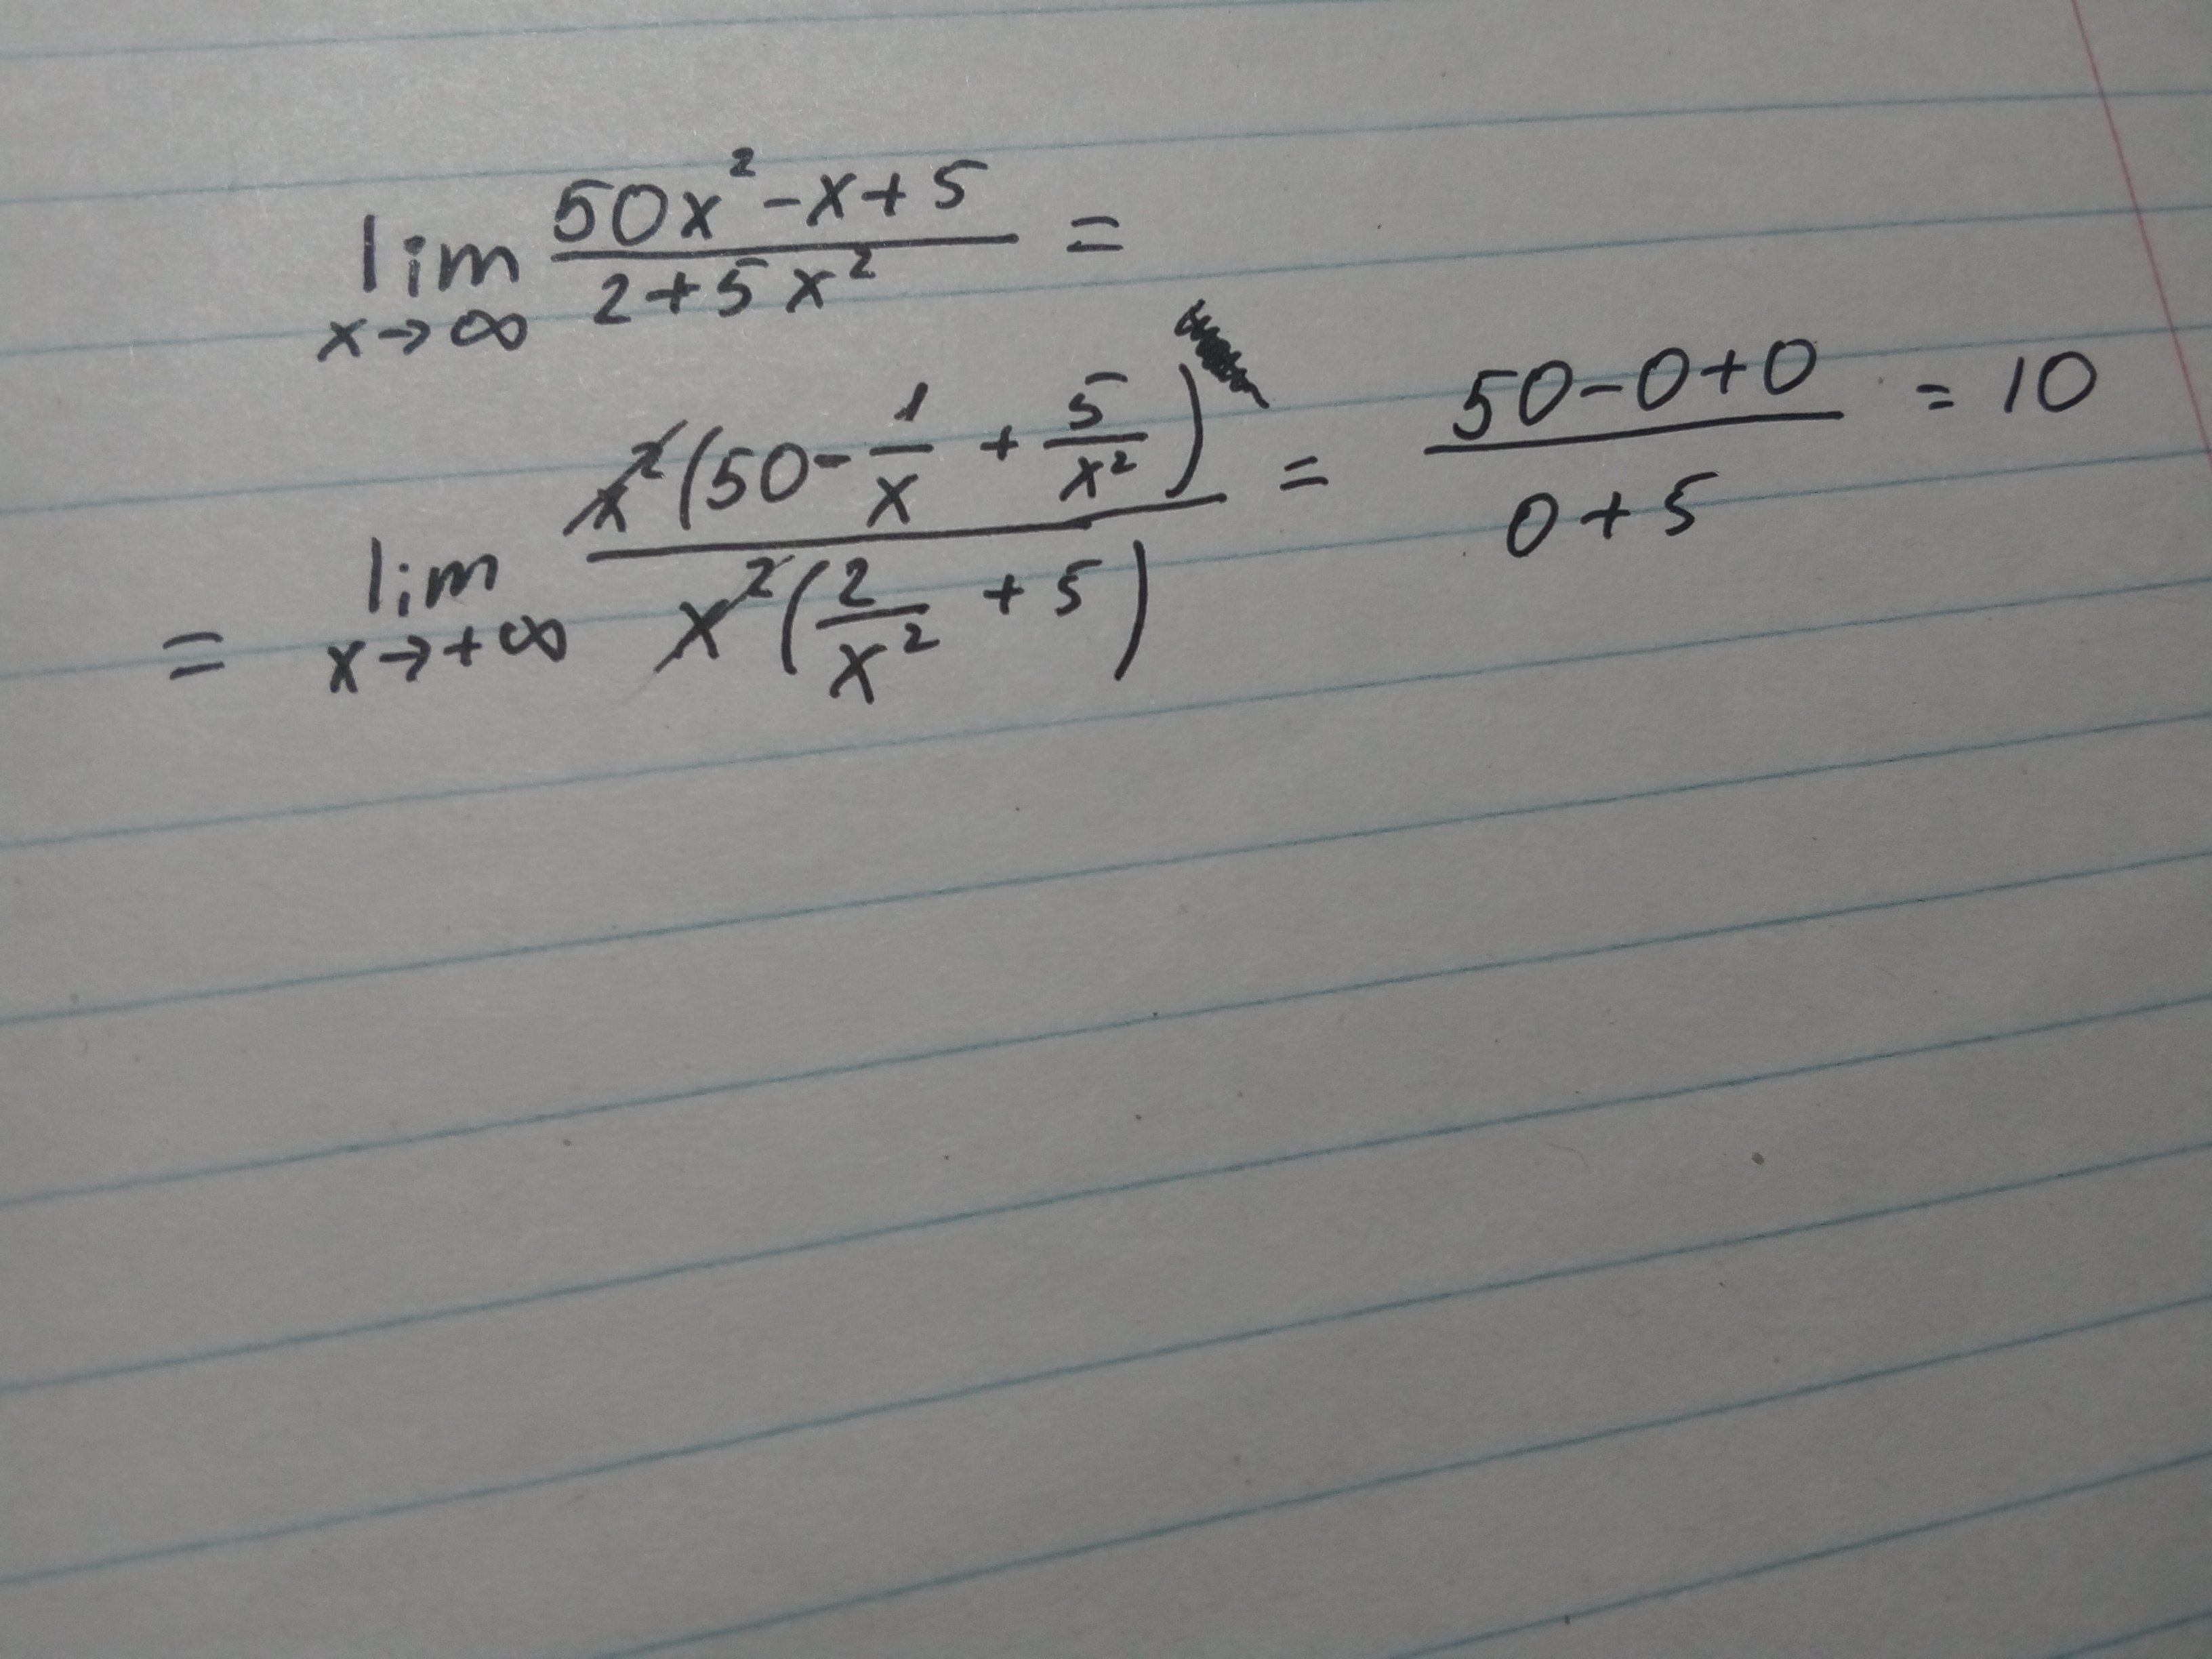 lim x→∞ (50x² - x + 5) / (2 + 5x²) =
= lim x→+∞ x²(50 - 1/x + 5/x²) / x²(2/x² + 5) = (50 - 0 + 0) / (0 + 5) = 10